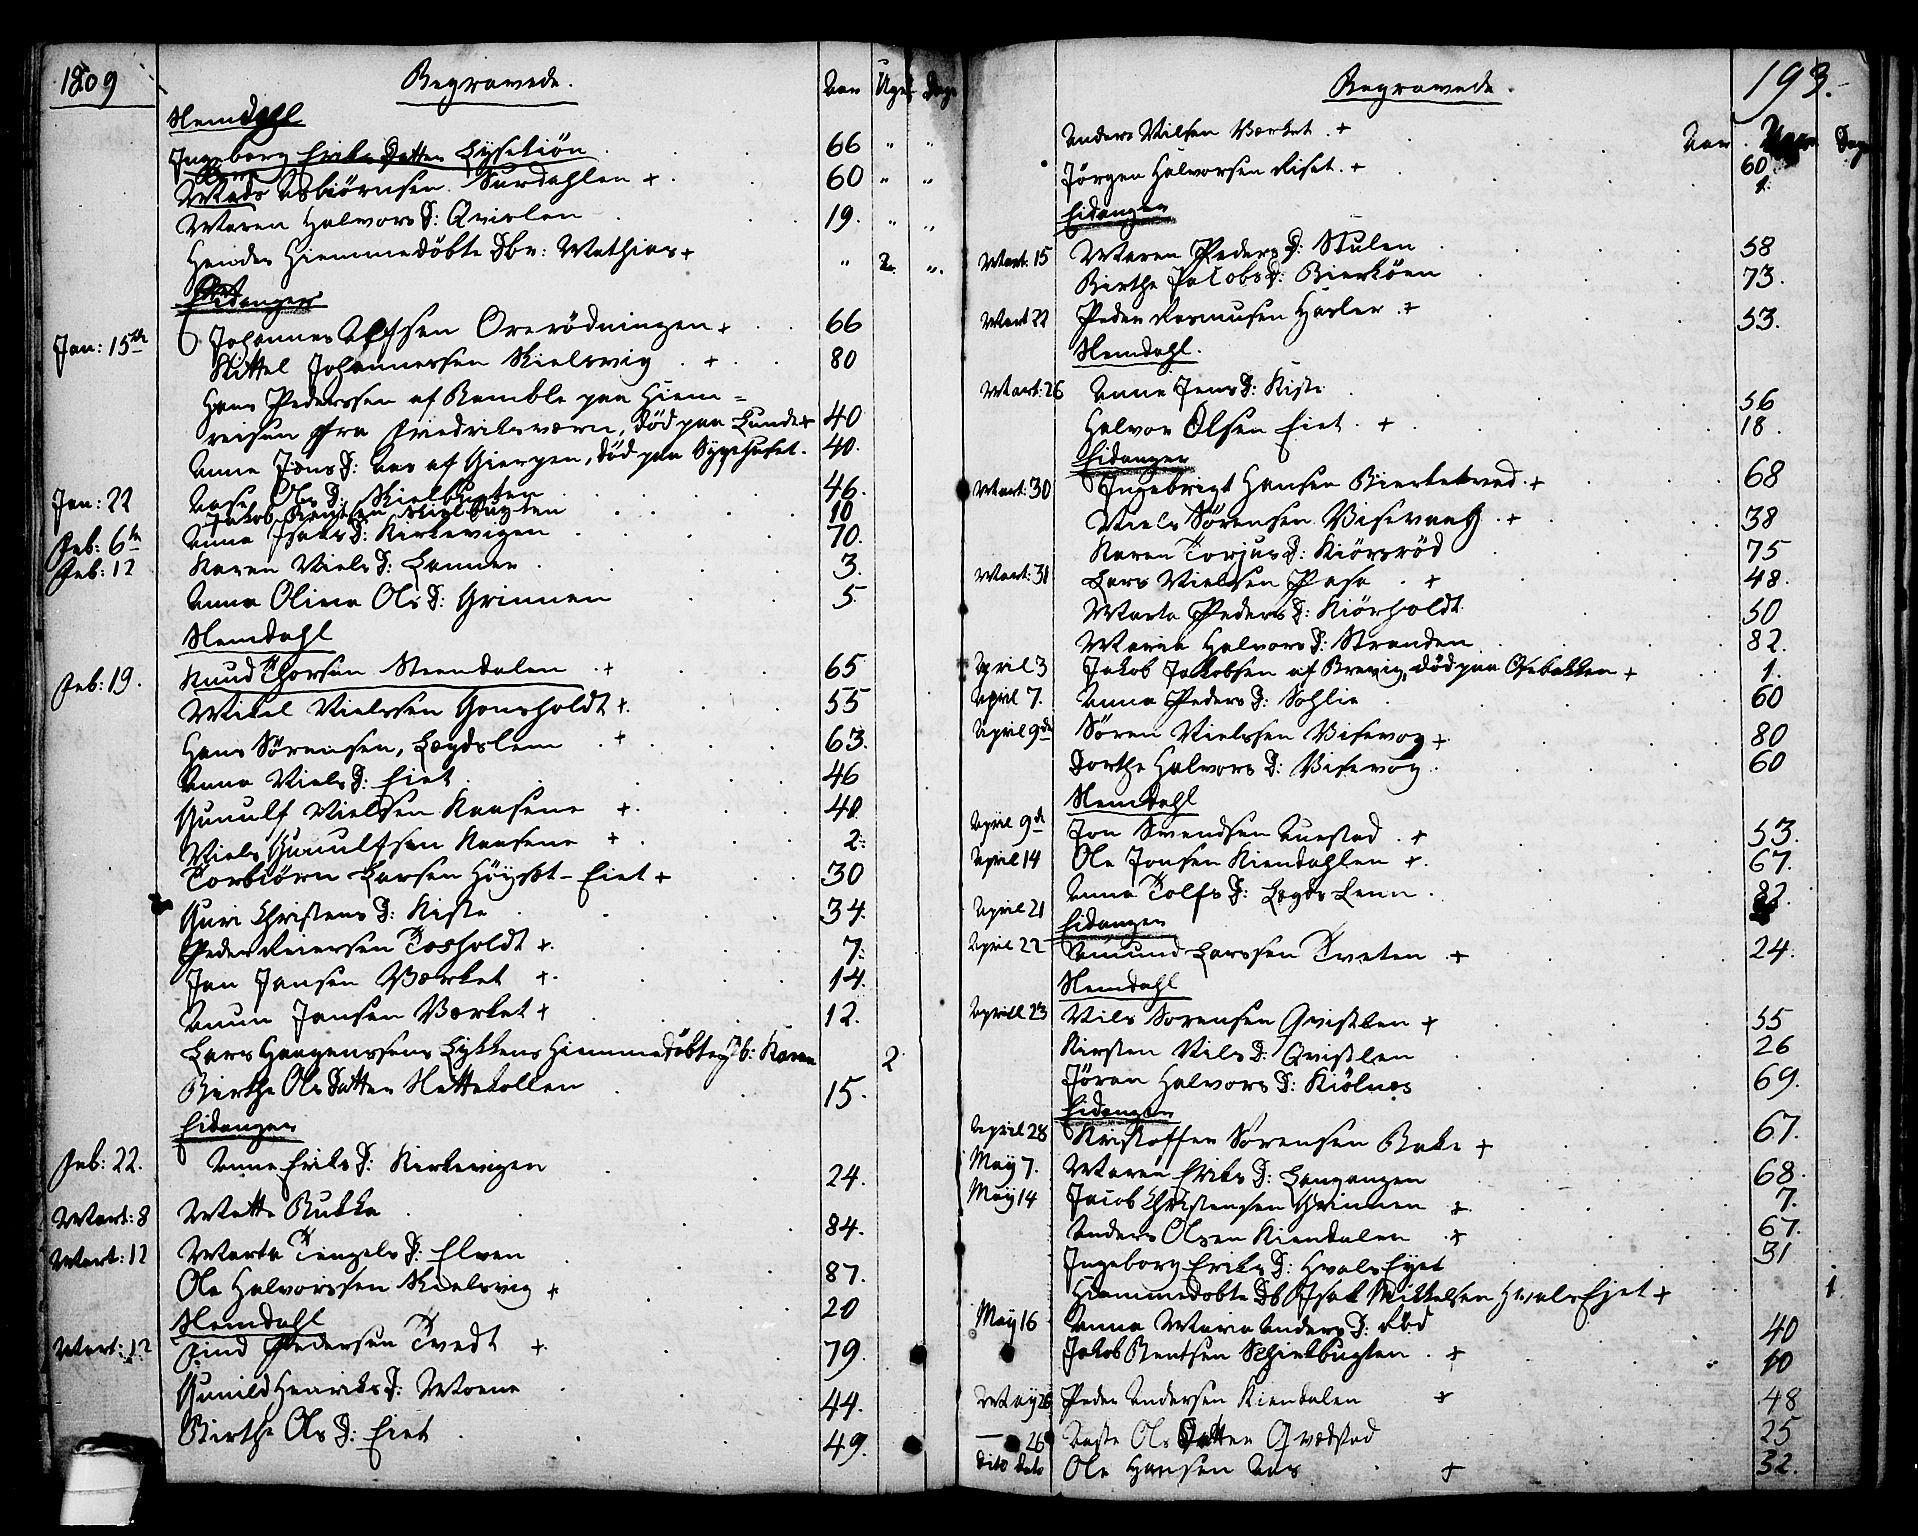 1809
Begravede.
Aar Uger Dage
Slemdahl
Ingeborg Eriks Datter Lysetiön 66 " "
Mads Asbiörnsen Surdahlen + 60 " "
Maren Halvors D: Qvislen 19. " "
Hendes Hiemmedöbte Dbr: Mathias + " 2. "
Eidanger
Jan: 15de Johannes Olsen Ororödningen + 66
Kittel Johannessen Skielsvig + 80
Hans Pederssen af Bamble paa Hiem=
reisen fra Friedriksværn, död paa Lunde + 40
Anne Jons D: Aas af Gierpen, död paa Sygehuset. 40.
Jan: 22 Aase Ols D: Skielbugten 46.
Jakob Bentsen Skielbugten 10
Feb: 6te Anne Isaks D: Kirkevigen 70.
Feb: 12 Karen Niels D: Lanner 3.
Anna Olina Ols D: Grinnen 5.
Slemdahl
Feb: 19. Knud Thorsen Steendalen + 65
Mikel Nielssen Gonsholdt + 55
Hans Sörensen, Lægdslem + 63.
Anna Niels D: Eiet 46
Gunulf Nielsen Kaasene + 40
Niels Gunulfsen Kaasene + 2.
Torbiörn Larsen Höyset-Eiet + 30
Guri Christens D: Kiste 34.
Peder Reiersen Tosholdt + 7.
Jan Jansen Værket + 14.
Anun Jansen Værket + 12.
Lars Haagenssens Lykkens Hiemmedöbte Pb: Karen 2
Birthe Ols Datter Slettekollen 15.
Eidanger
Feb: 22. Anne Eriks D: Kirkevigen 24.
Mart: 8 Mette Bukka 84.
Mart: 12 Marta Tengels D: Elven 87.
Ole Halvorssen Skielsvig + 20
Slemdahl
Mart: 12 Find Pedersen Tvedt + 79.
Gunild Henriks D: Moene 44.
Birthe Ols D: Eiet 49.
193.
Begravede.
Aar Dage
Anders Nilsen Værket + 60
Jörgen Halvorsen Riset + 1.
Eidanger
Mart: 15 Maren Peders D: Stulen 58
Birthe Jacobs D: Bierköen 73.
Mart 22 Peder Rasmusen Hasler + 53.
Slemdahl.
Mart: 26 Anne Jens D: Kiste 56
Halvor Olsen Eiet + 18.
Eidanger
Mart: 30 Ingebrigt Hansen Bierketved + 68
Niels Sörensen Vissevaag + 38
Karen Torjus D: Kiörsröd 75
Mart: 31 Lars Nielsen Pasa + 48.
Marta Peders D: Kiörholdt 50
Maria Halvors D: Stranden 82.
April 3 Jakob Jakobsen af Brevig, död paa Ostebakken + 1.
April 7. Anna Peders D: Sohlie 60
April 9de Sören Nielssen Visevog + 80
Dorthe Halvors D: Visevog 60
Slemdahl
April 9de Jon Svendsen Auestad + 53.
April 14 Ole Jonsen Kiendahlen + 67.
April 21 Anne Tolfs D: Lægds Lem
Eidanger
April 22 Amund Larssen Tveten + 24.
Slemdahl
Aprill 23 Nils Sorensen Qvistlen + 55
Kirsten Nils D: Qvistlen 26
Jöran Halvors D: Kiölnes 69.
Eidanger
April 28 Kristoffer Sörensen Bakke + 67.
May 7. Maren Eriks D: Langangen 68.
May 14 Jacob Christensen Grinnen + 7.
Anders Olsen Kiendalen + 67.
Ingeborg Eriks D: Hvals Eyet 31
Hiemmedobte Db Isak Mikkelsen Hvals Ejet + 1
May 16 Anna Maria Anders D: Röd 40
Jakob Bentsen Schielbugten + 10
May 26 Peder Andersen Kiendalen + 48
— 26 Aaste Ols Datter Qvedstad 25
dito dato Ole Hansen Aas + 32.